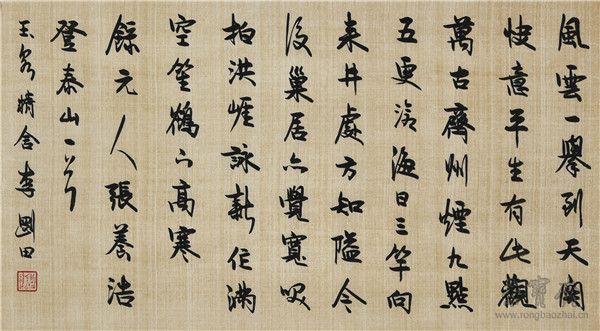 風雲一舉到天関
快意平生有此觀
萬古齊州煙九點
五更滄海日三竿向
来井處方知隘今
後巢居亦覺寬咲
拍洪崖詠新作滿
空笙鶴下高寒
錄元人張養浩
登泰山一首
玉泉精舍李剛田
www.rongbaozhai.cn